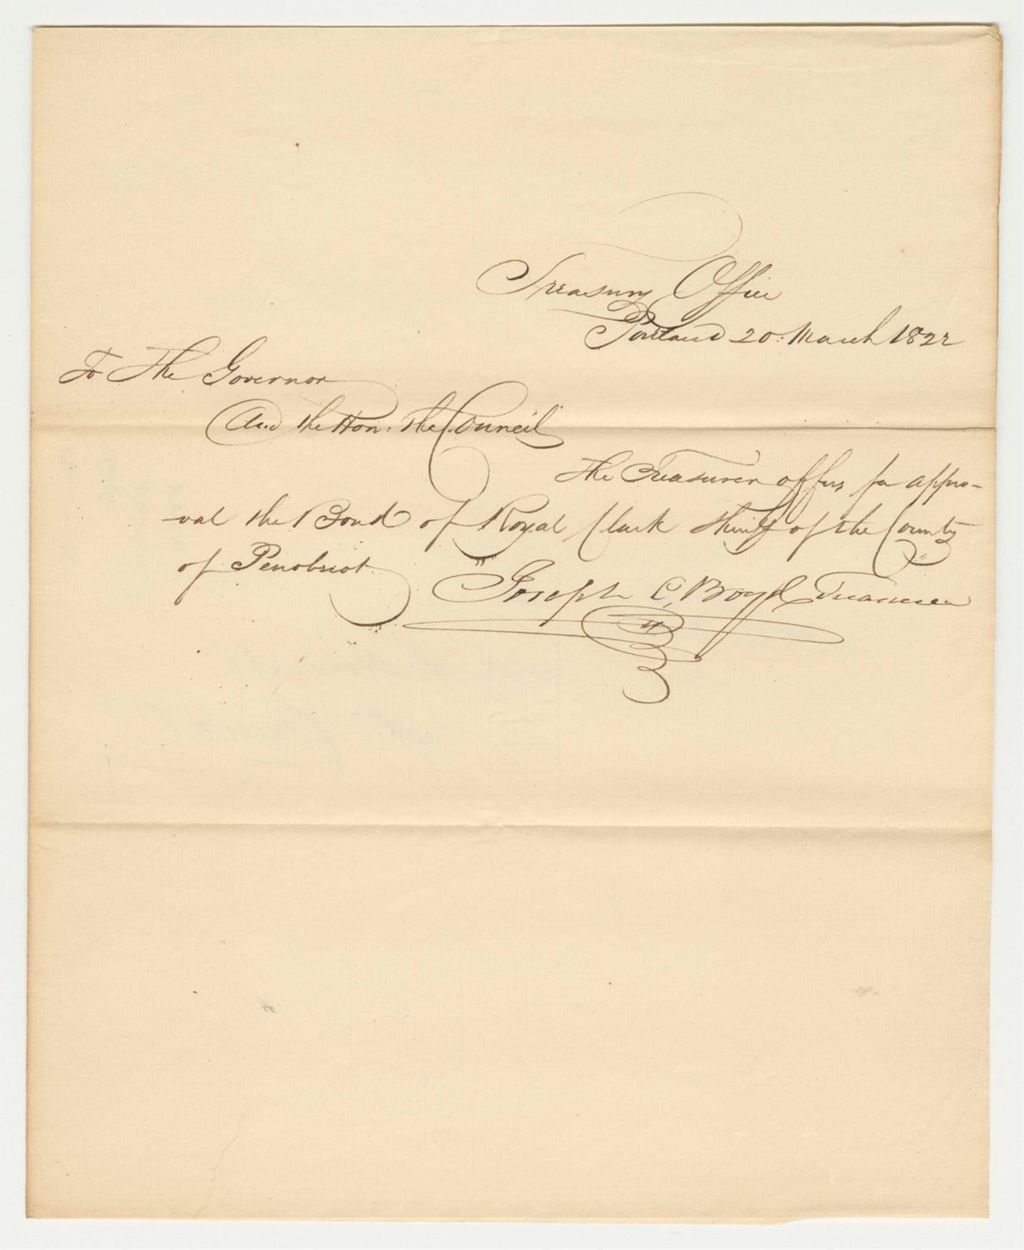 Treasury Office
Portland 20. March 1822
To The Governor
And the Hon. the Council
The Treasurer offers for appro-
val the Bond of Royal Clark Sheriff of the County
of Penobscot.
Joseph C. Boyd Treasurer